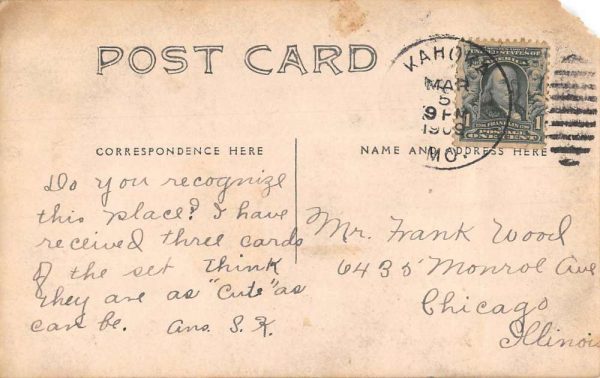 POST CARD
KAHOKA
MAR
5
9 PM
1909
MO.
UNITED STATES OF
AMERICA
FRANKLIN
1 POSTAGE 1
ONE CENT
CORRESPONDENCE HERE
NAME AND ADDRESS HERE
Do you recognize
this place? I have
received three cards
of the set think
they are as "cute" as
can be. Ans. S. K.
Mr. Frank Wood
6435 Monroe Ave
Chicago
Illinois